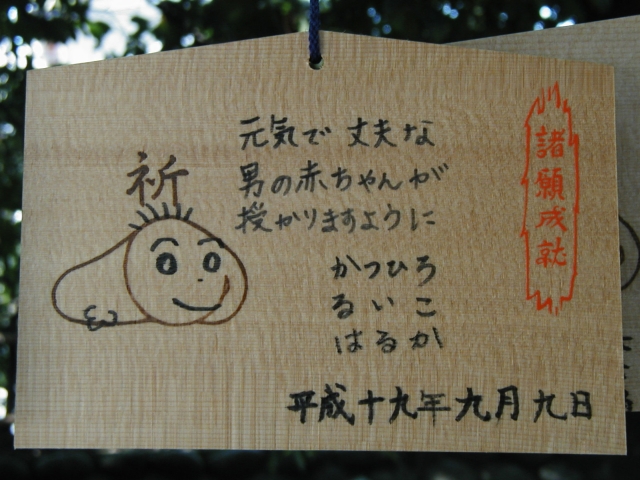 諸願成就
元気で丈夫な
男の赤ちゃんが
授かりますように
かつひろ
るいこ
はるか
祈
平成十九年九月九日